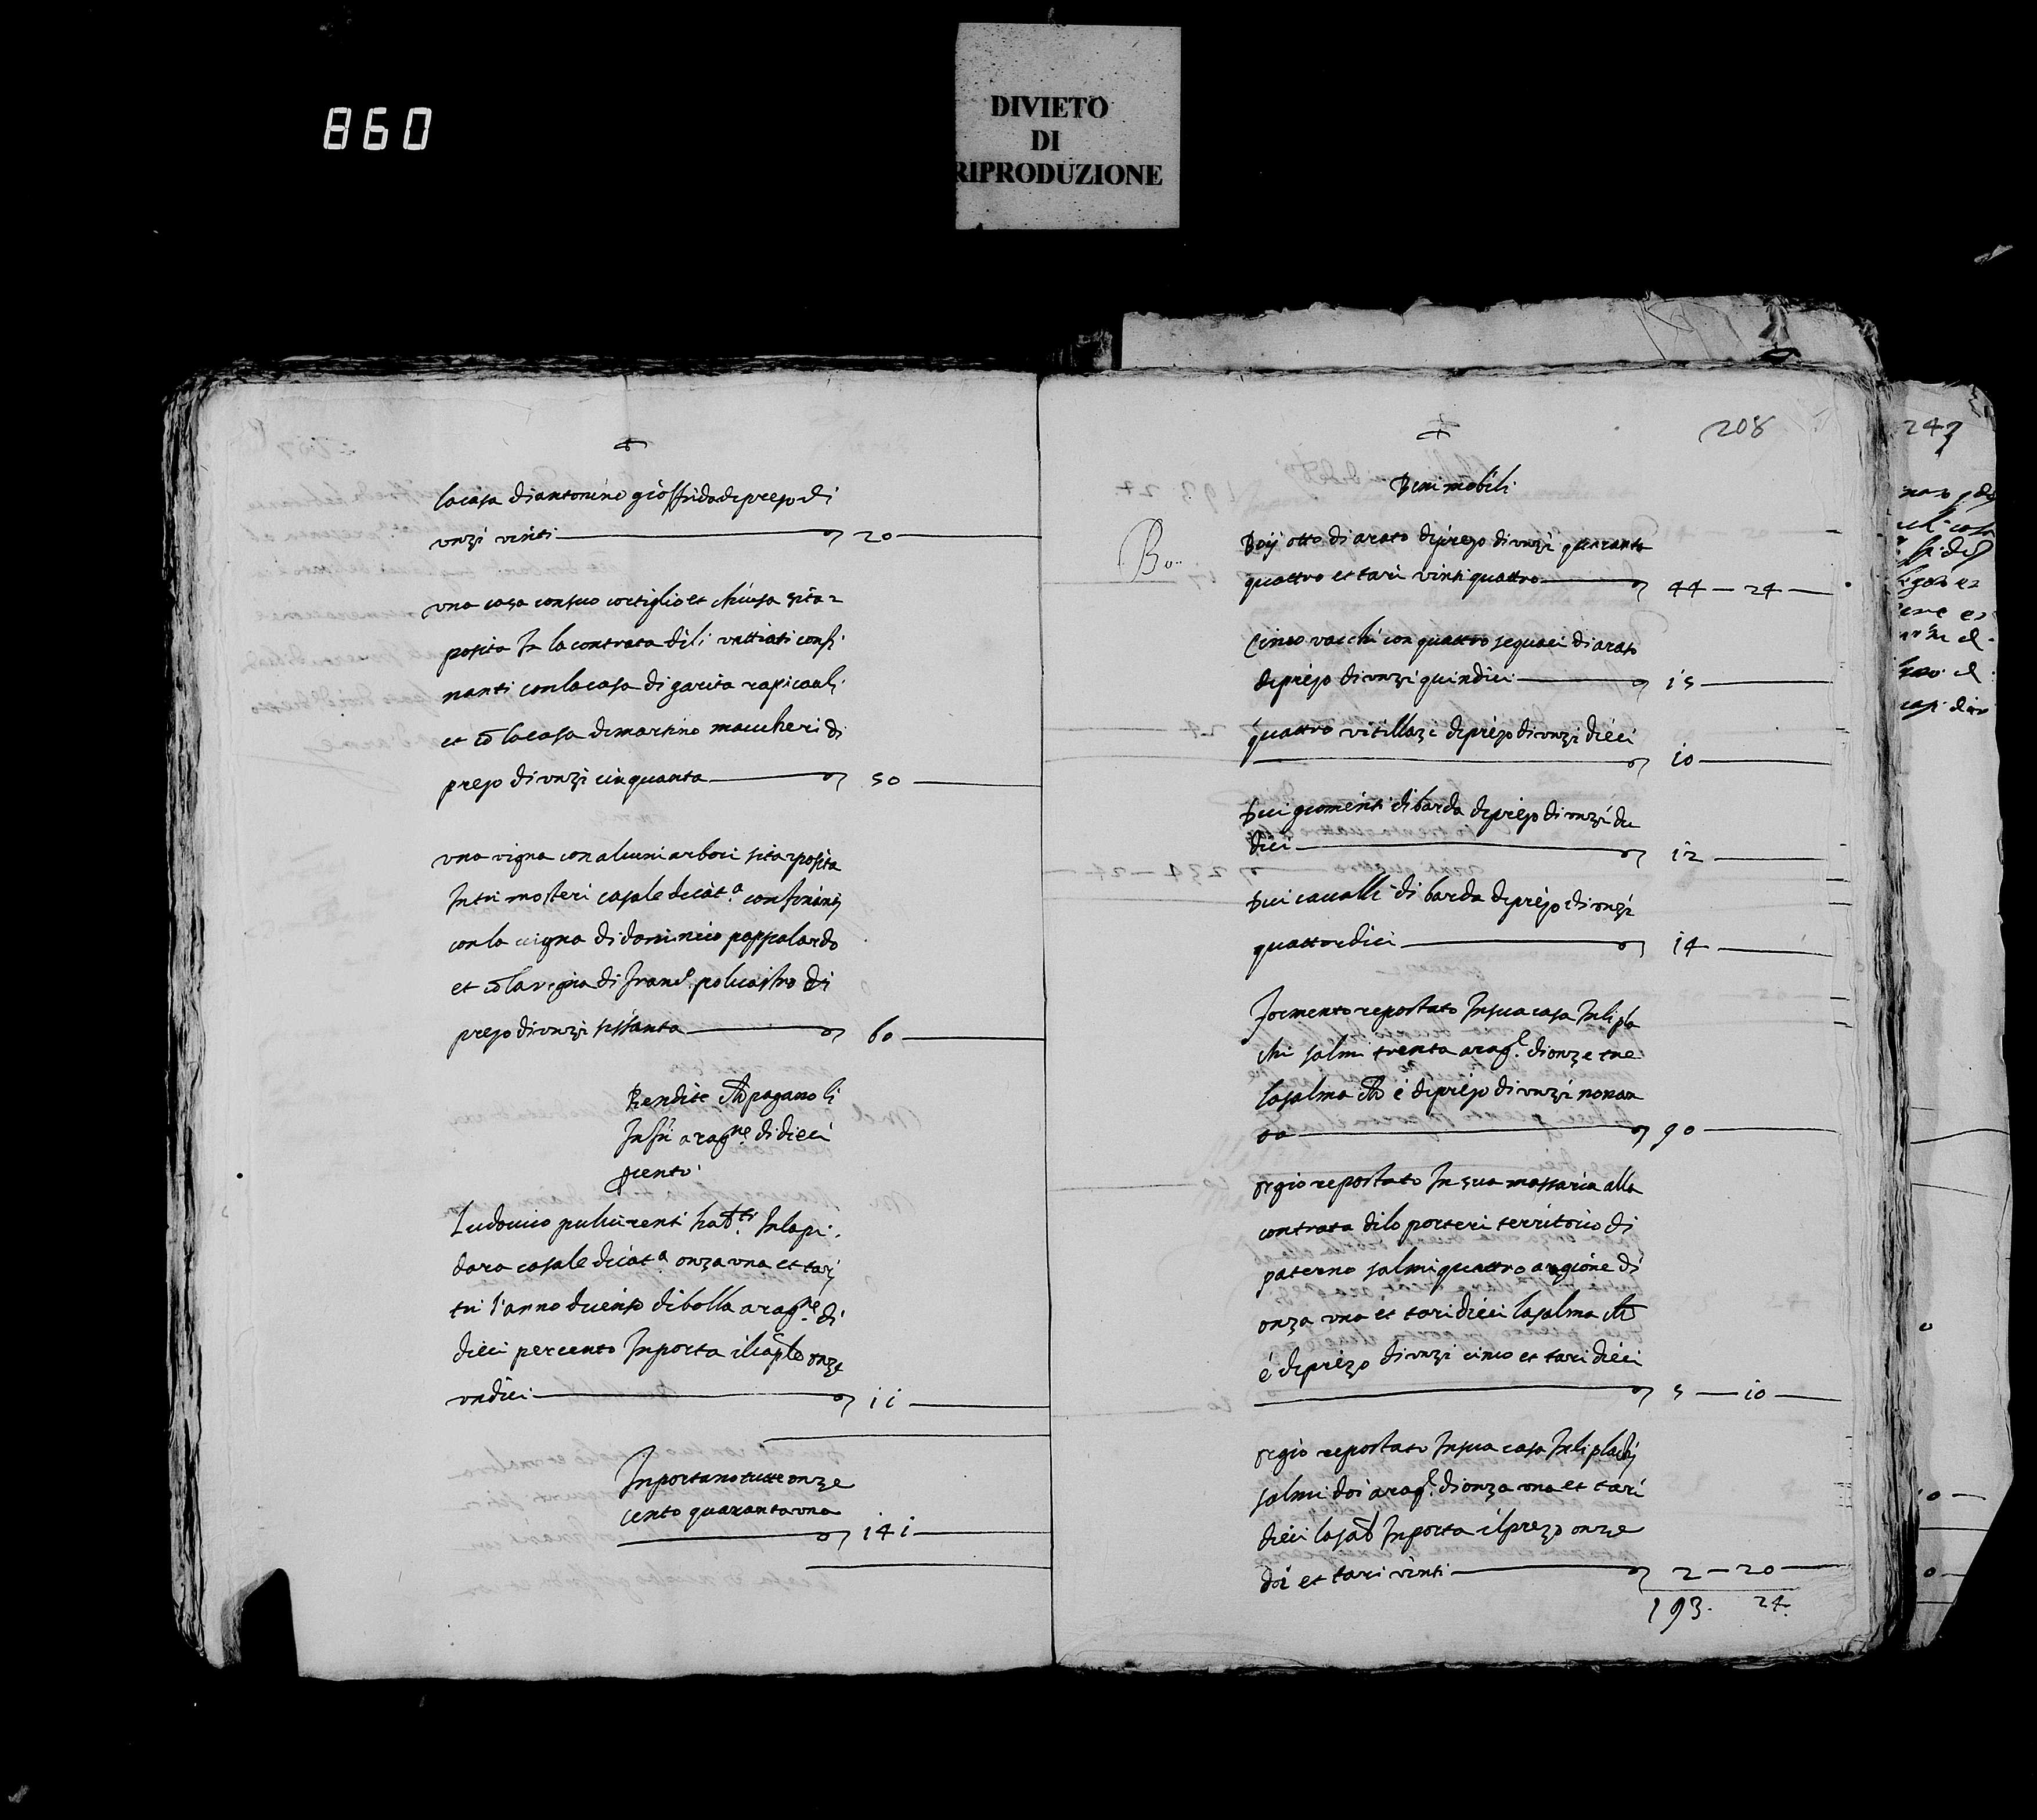 860
DIVIETO
DI
RIPRODUZIONE
la casa di antonino gioffrida de prezo di
unzi vinti 20
una casa con suo cortiglio et chiusa sita
posita In la contrata dili vattiati confi
nanti con la casa di garita rapicauli
et cō la casa de martino maccheri di
prezo di unzi cinquanta 50
una vigna con alcuni arbori sita posita
In tri mosteri casale di cat.a confinanti
con la vigna di dominico pappalardo
et cō la vigna di franc.o policastro di
prezo di unzi sissanta 60
Rendite pagano li
Infri arag.ne di dieci
p cento
Ludovico pulvirenti hab.ti In la pi
dara casale di cat.a onza una et tarì
tri l'anno di bolla a rag.ne di
dieci per cento Inporta il cap.le onze
undici 11
Inportano tutte onze
cento quaranta una
141
208
Beni mobili
Bo..
Boij otto di arato de prezo di unzi quaranta
quattro et tari vinti quattro 44 - 24
Cinco vacchi con quattro sequaci di arato
de prezo di unzi quindici 15
quattro vitillazi de prezo di unzi dieci
10
Dui giomenti di barda de prezo di unzi du
dici 12
Dui cavalli di barda de prezo di unzi
quattordici 14
formento repostato In sua casa In li pla
chi salmi trenta a rag.e di onze tre
la salma è de prezo di unzi novan
ta 90
orgio repostato In sua massaria alla
contrata di lo porteri territorio di
paterno salmi quattro a ragione di
onza una et tari dieci la salma
è de prezo di unzi cinco et tari dieci
5 - 10
orgio repostato In sua casa In li plachi
salmi doi a rag.e di onza una et tari
dieci la sal.a Inporta il prezo onze
doi et tari vinti 2 - 20
193. 24.
247